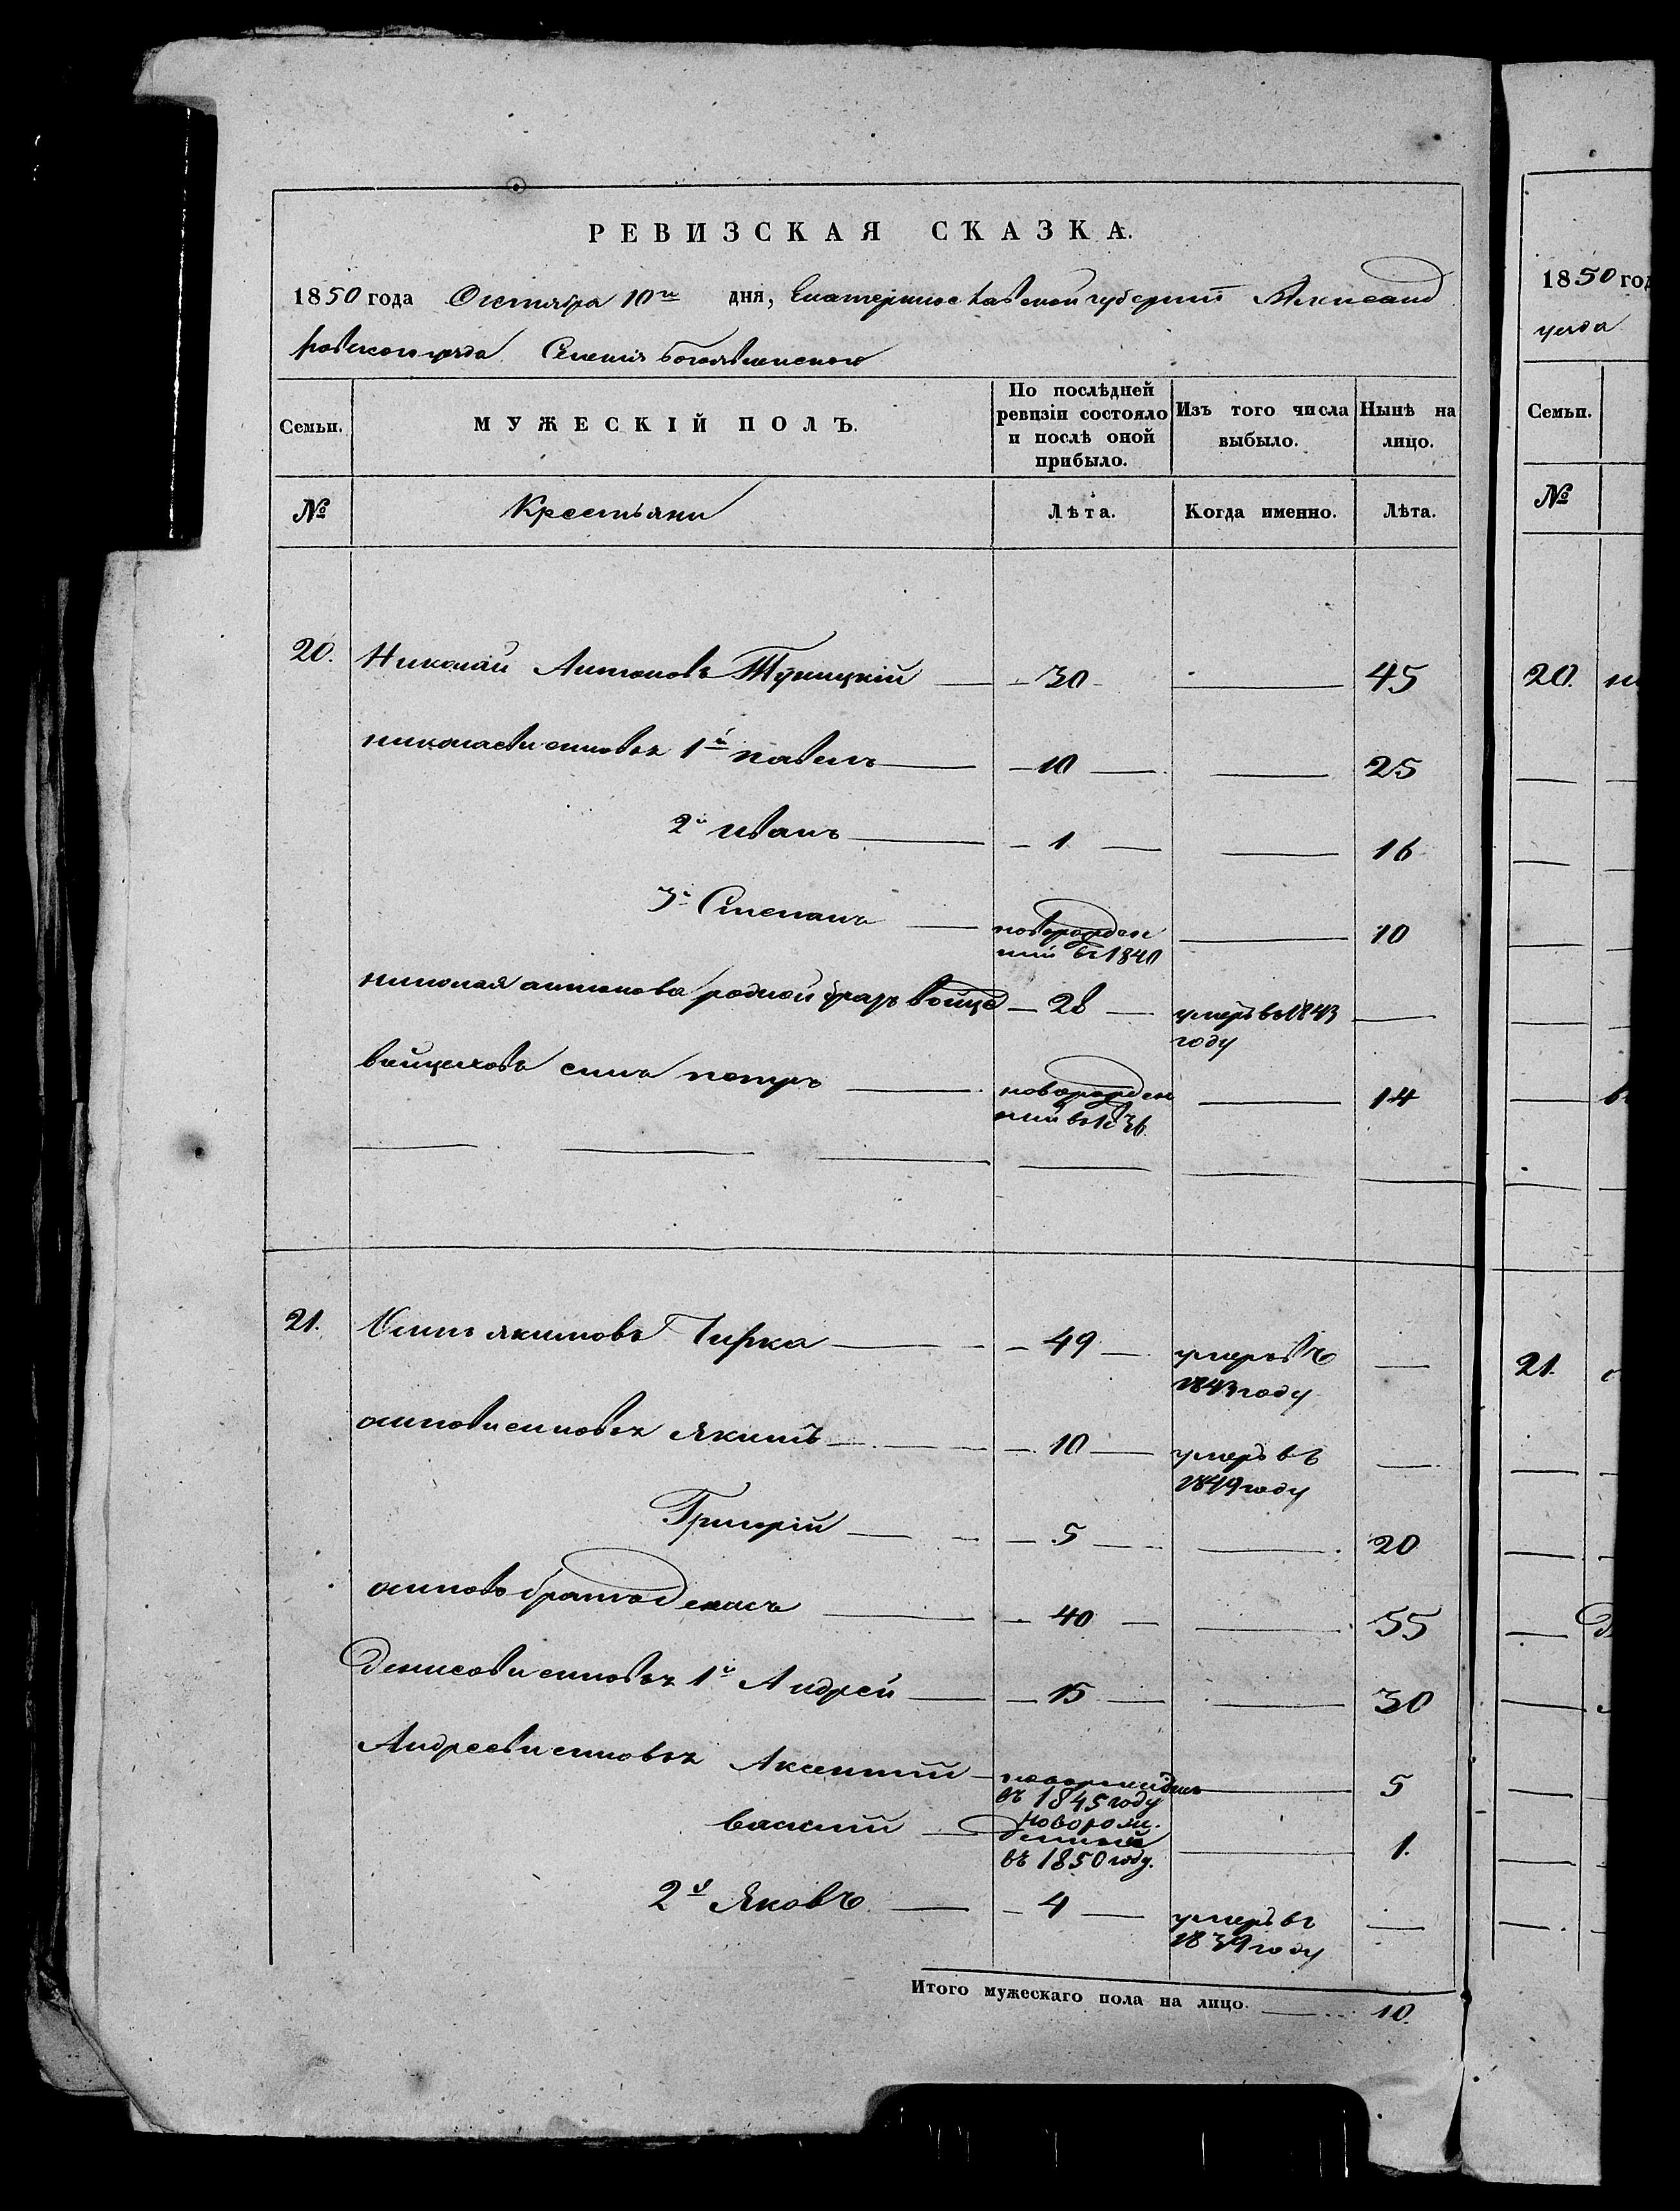 РЕВИЗСКАЯ СКАЗКА.
1850 года Октября 10го дня, Екатеринославской губернии Александ
ровского уезда Селения Богоявленского
Семьи. МУЖЕСКІЙ ПОЛЪ. По послѣдней ревизіи состояло и послѣ оной прибыло. Изъ того числа выбыло. Нынѣ на лицо.
№ Крестьяни Лѣта. Когда именно. Лѣта.
20. Николай Антоновъ Туницкій 30 45
николаеви синовья 1й павелъ 10 25
2й иванъ 1 16
3й Степанъ новорожден ний въ 1840 10
николая антонова родной братъ войце 28 умеръ въ 1843 году
войцехова синъ петръ новорожден ний въ 1836 14
21. Осипъ якимовъ Чирка 49 умеръ въ 1843 году
осипови синовья Якимъ 10 умеръ въ 1849 году
Григорій 5 20
осиповъ братъ денисъ 40 55
денисови синовья 1й Андрей 15 30
Андрееви синовья Аксентій въ 1845 году 5
василий новорож денний въ 1850 году. 1.
2й Яковъ 4 умеръ въ 1839 году
Итого мужескаго пола на лицо. 10.
1850 год
уезда
Семьи.
№
20.
21.